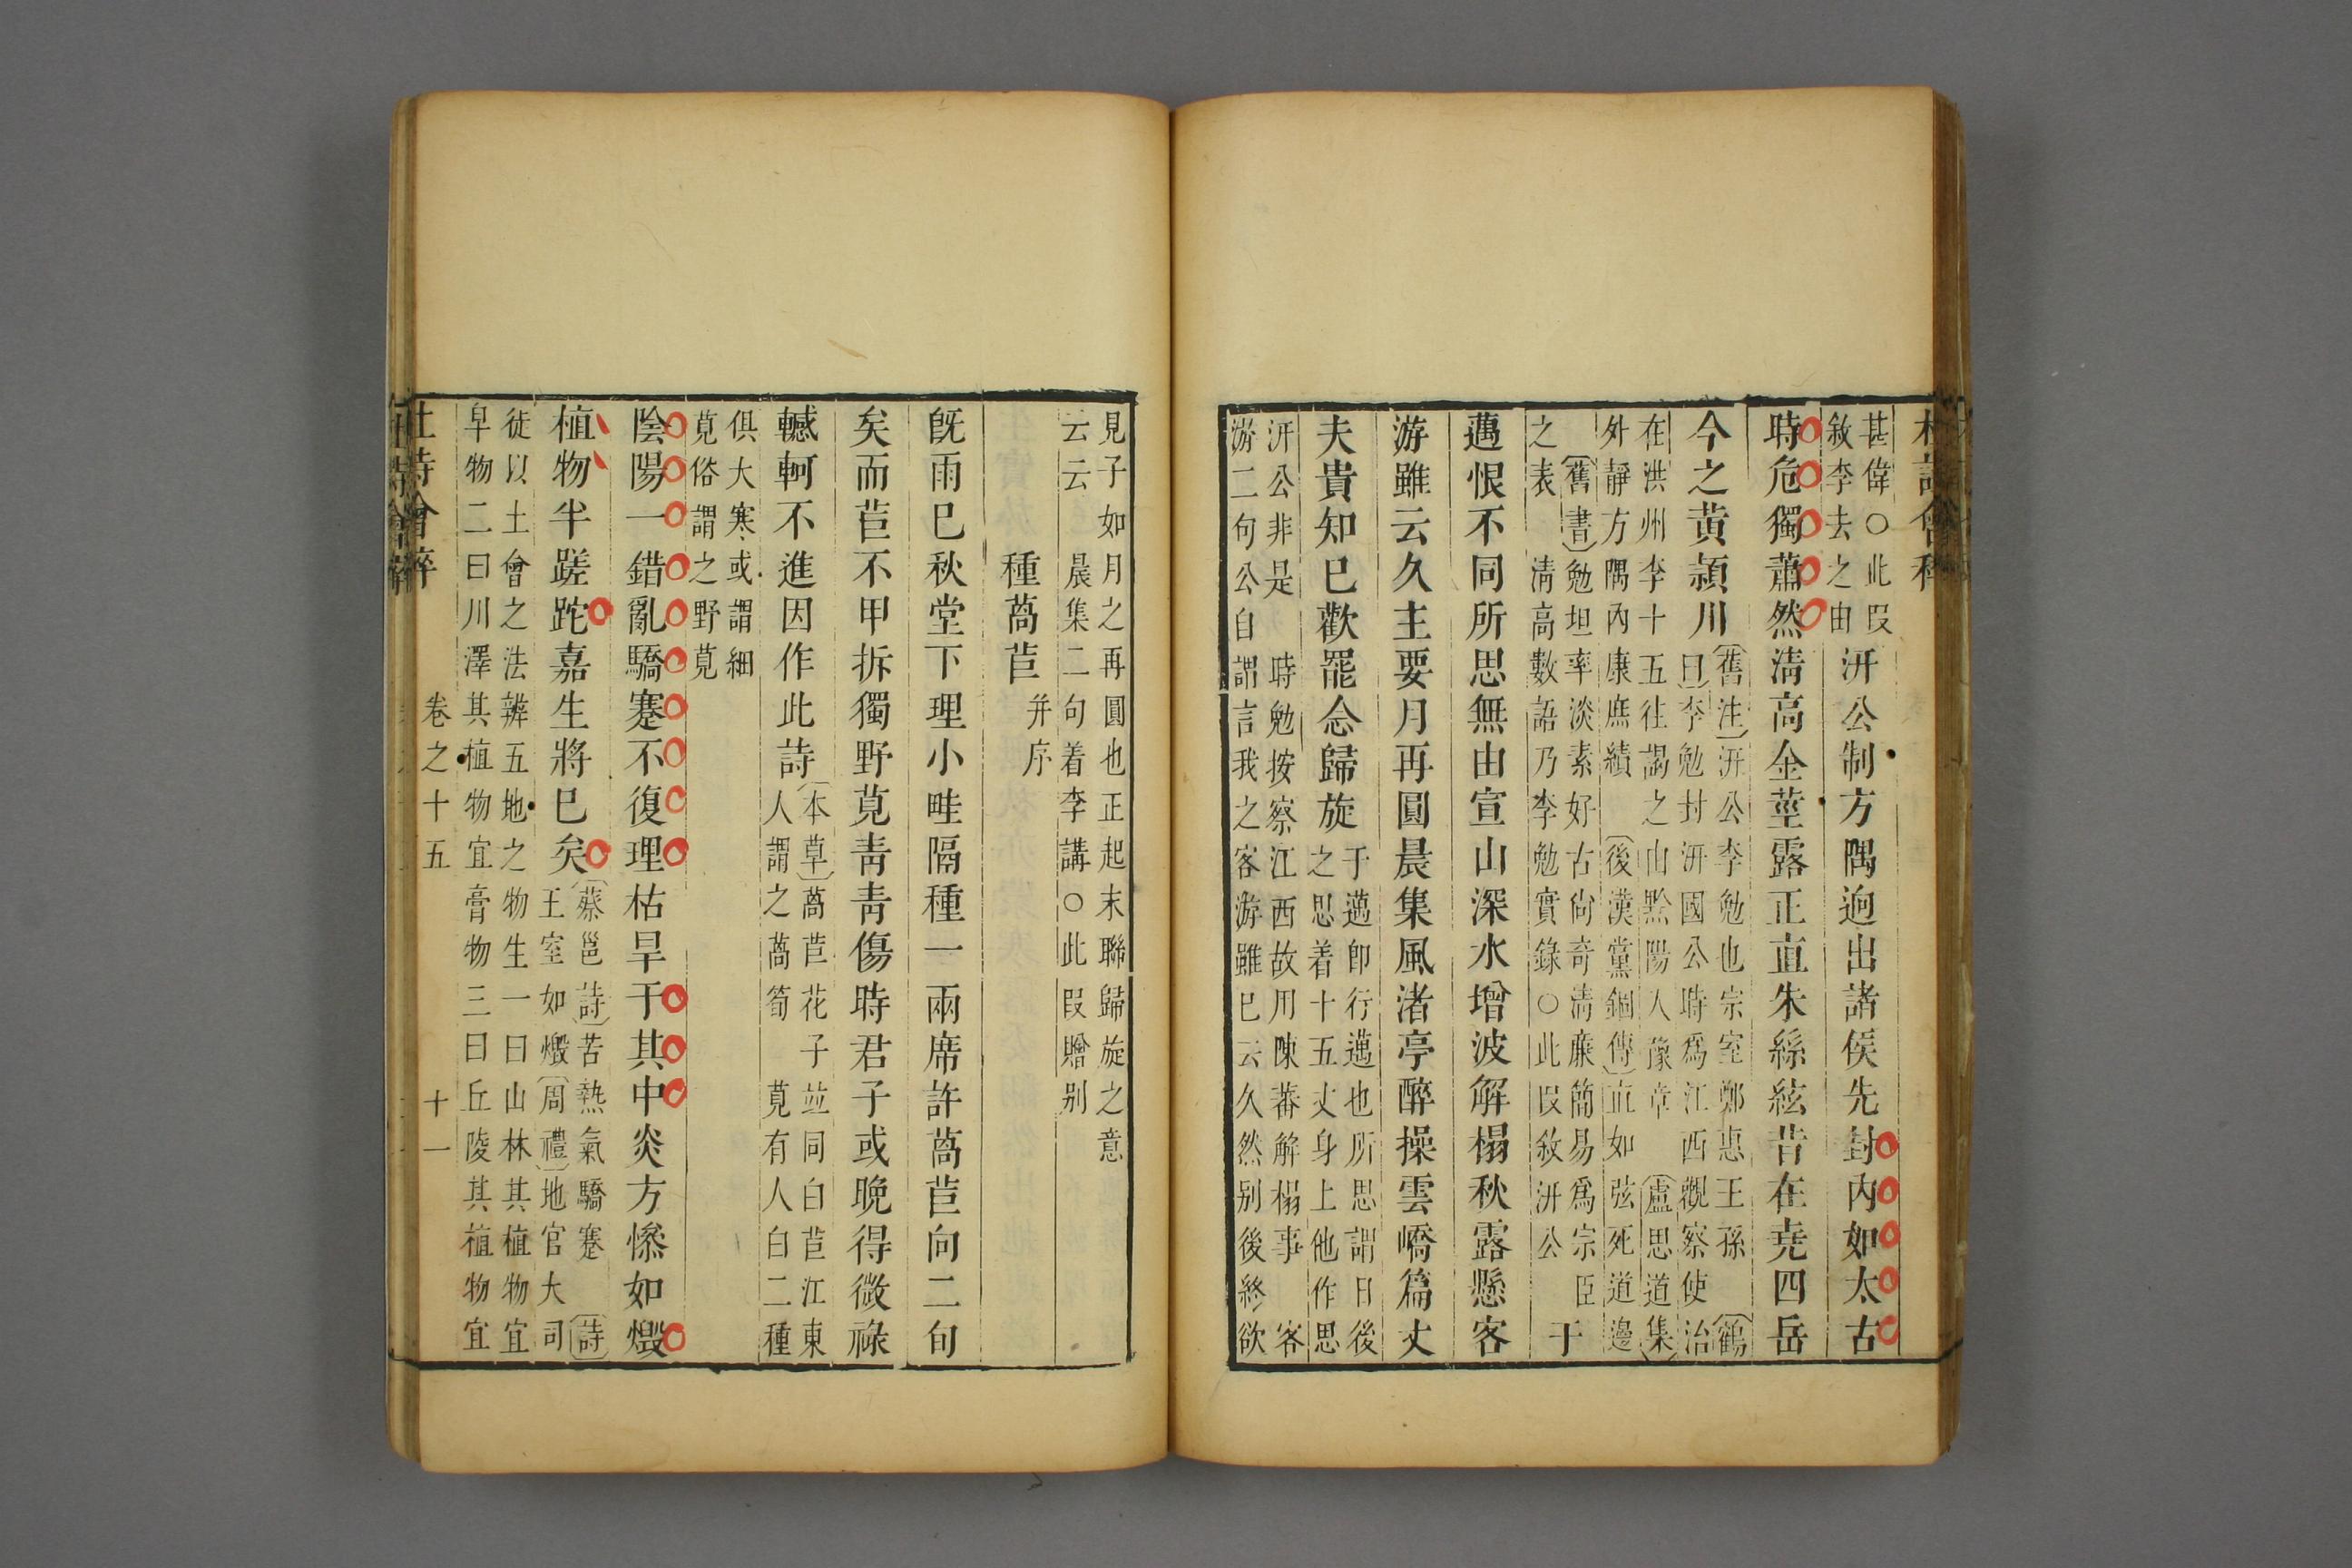 杜詩會稡
甚偉〇此叚
敘李去之由
汧公制方隅逈出諸侯先封內如太古
時危獨蕭然淸高金莖露正直朱絲絃昔在堯四岳
今之黄潁川
舊注汧公李勉也宗室鄭惠王孫
曰李勉封汧國公時爲江西觀察使治
鶴
在洪州李十五往謁之山黔陽人豫章
盧思道集
外靜方隅內康庶績
後漢黨錮傳直如弦死道邊
舊書勉坦率淡素好古尙奇淸廉簡易爲宗臣
之表
淸高數語乃李勉實錄〇此叚敘汧公
于
邁恨不同所思無由宣山深水增波解榻秋露懸客
游雖云久主要月再圓晨集風渚亭醉操雲嶠篇丈
夫貴知已歡罷念歸旋
于邁卽行邁也所思謂日後
之思着十五丈身上他作思
汧公非是
時勉按察江西故用陳蕃解榻事
客
游二句公自謂言我之客游雖已云久然别後終欲
見子如月之再圓也正起末聯歸旋之意
云云
晨集二句着李講〇此叚贈别
種萵苣并序
旣雨已秋堂下理小畦隔種一兩席許萵苣向二旬
矣而苣不甲拆獨野莧靑靑傷時君子或晚得微祿
轗軻不進因作此詩
本草萵苣花子並同白苣江東
人謂之萵筍
莧有人白二種
俱大寒或謂細
莧俗謂之野莧
陰陽一錯亂驕蹇不復理枯旱于其中炎方慘如燬
植物半蹉跎嘉生將已矣
蔡邕詩苦熱氣驕蹇
詩
王室如燬周禮地官大司
徒以土會之法辨五地之物生一曰山林其植物宜
皁物二曰川澤其植物宜膏物三曰丘陵其植物宜
杜詩會稡
卷之十五
十一